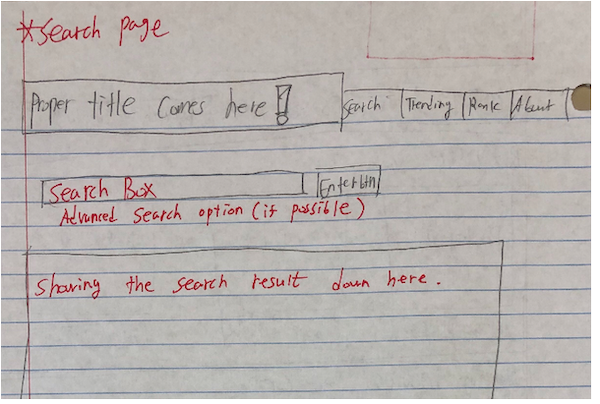 *Search page
Proper title comes here! Search Trending Rank About
Search Box Enter btn
Advanced Search option (if possible)
Showing the search result down here.